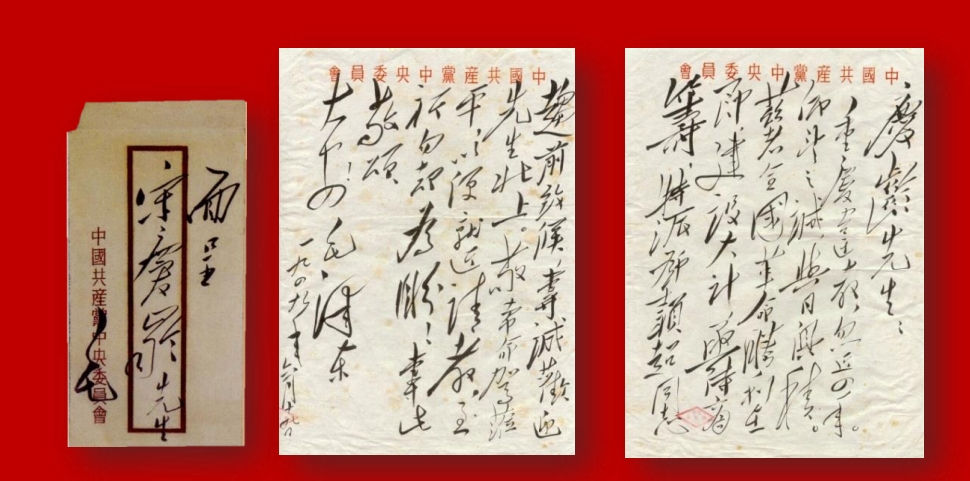 中國共産黨中央委員會
慶齡先生：
重慶違教，忽近四年。
仰望之誠，與日俱積。
茲者全國革命勝利在
即，建設大計，亟待商
籌，特派鄧穎超同志
中國共産黨中央委員會
趨前致候，專誠歡迎
先生北上。敬希命駕蒞
平，以便就近請教，至
祈勿却為盼！專此
敬頌
大安！
毛澤東
一九四九年六月十九日
面呈
宋慶齡先生
中國共産黨中央委員會
毛